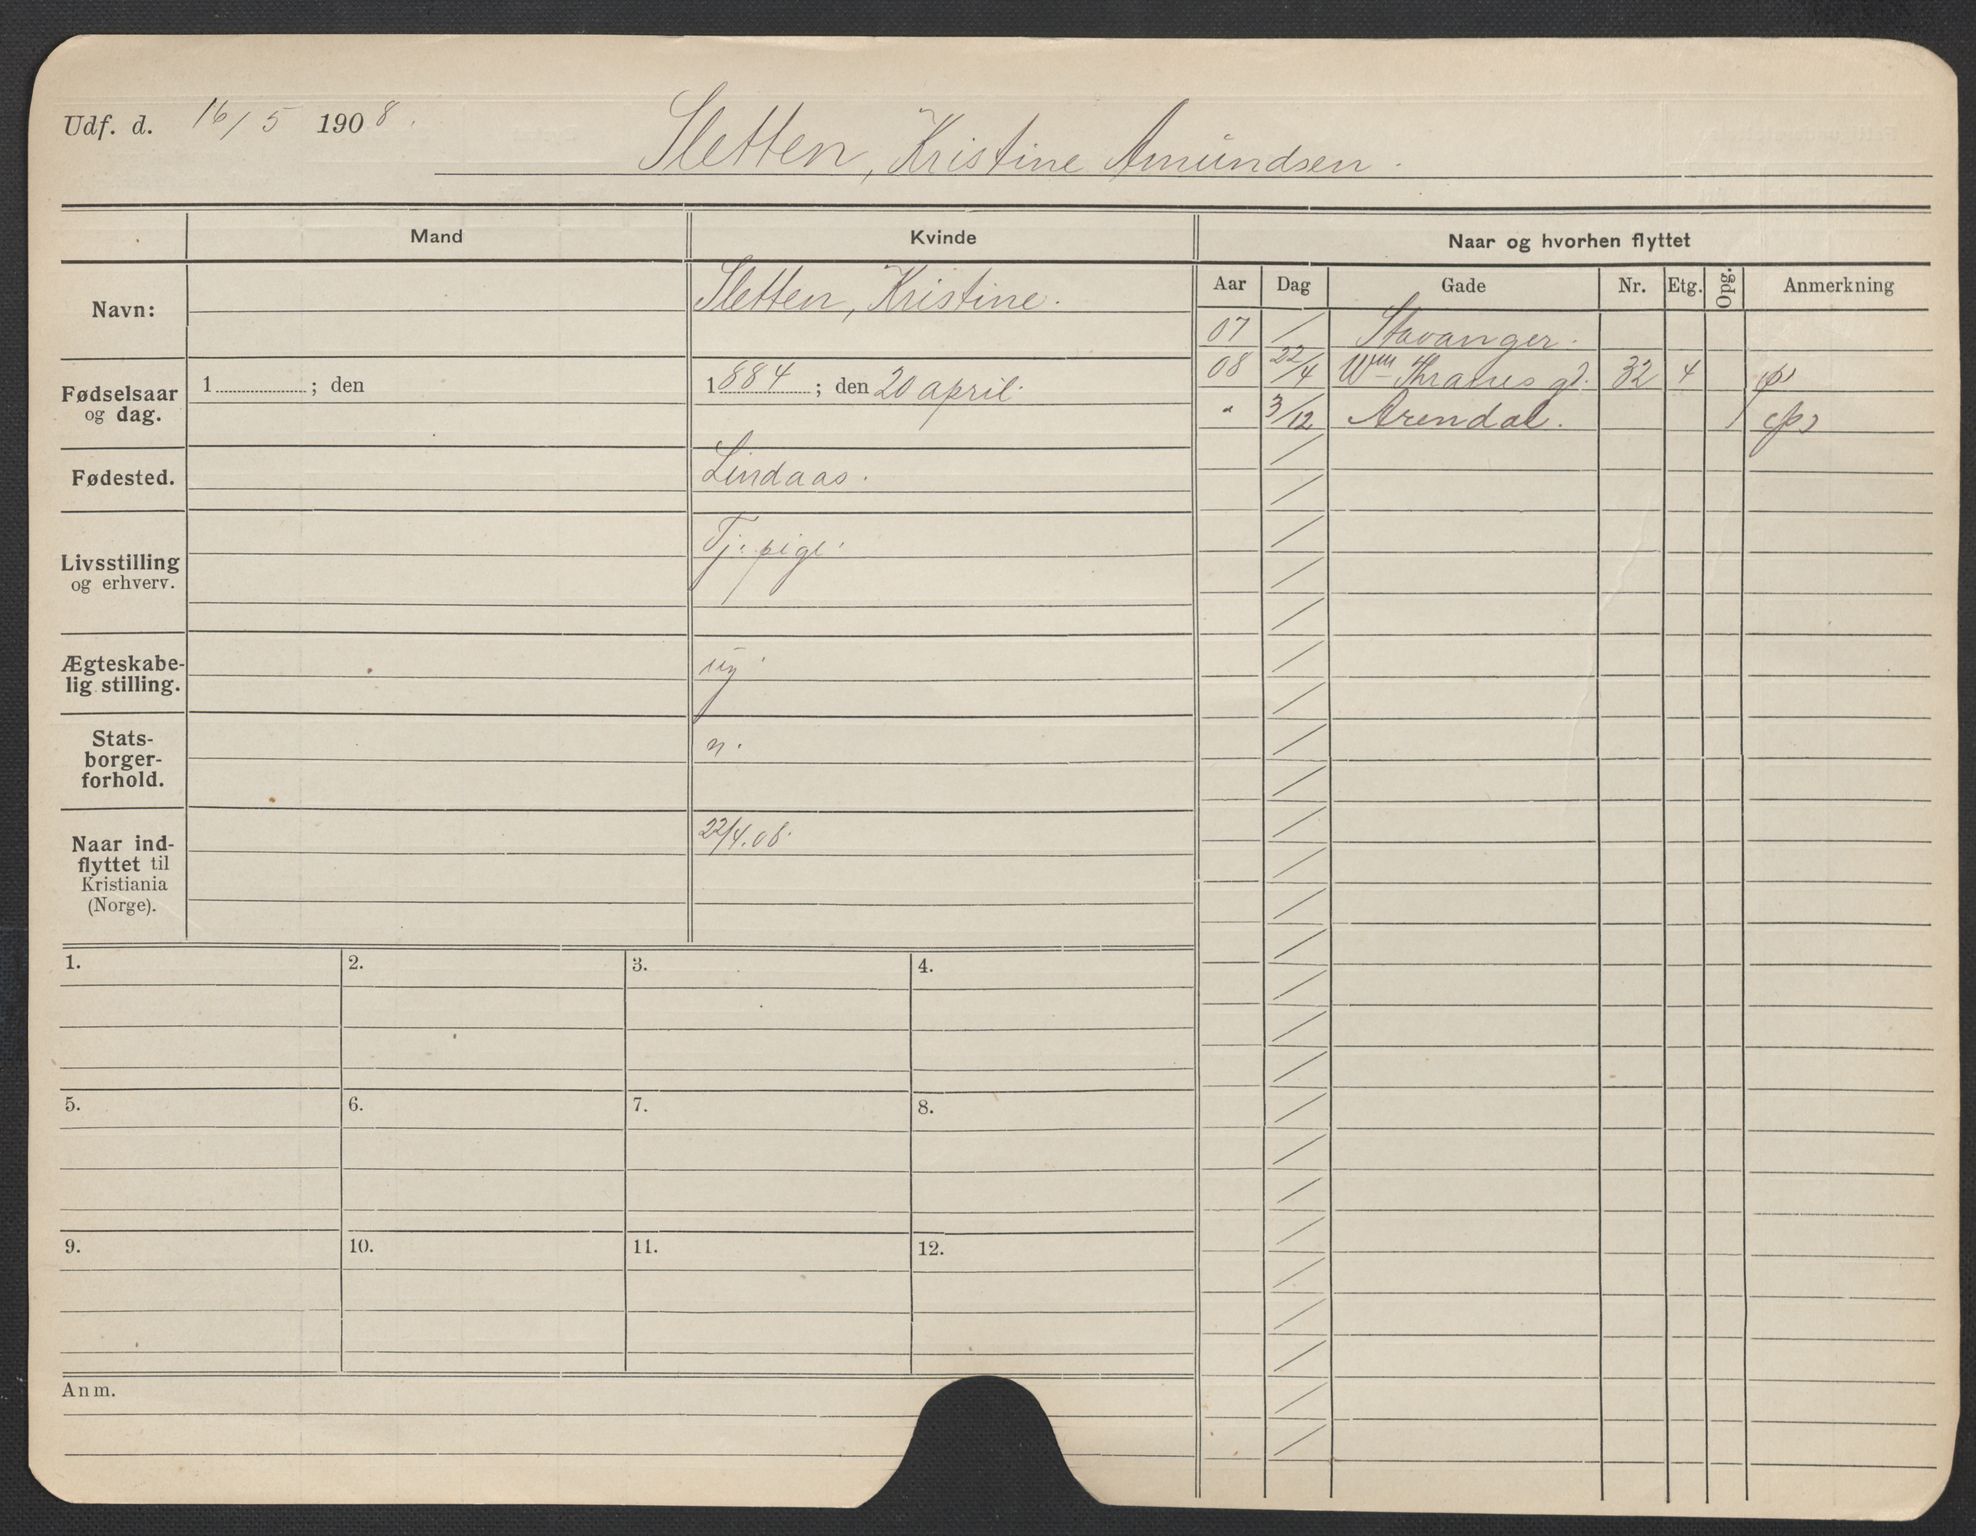 Udf. d. 16/5 1908.
Sletten, Kristine Amundsen.
Mand
Kvinde
Naar og hvorhen flyttet
Navn:
Sletten, Kristine.
Fødselsaar
og dag.
1 ; den
1884 ; den 20 april.
Fødested.
Lindaas.
Livsstilling
og erhverv.
Tj. pige.
Ægteskabe-
lig stilling.
ug.
Stats-
borger-
forhold.
n.
Naar ind-
flyttet til
Kristiania
(Norge).
22/4.08.
Aar Dag Gade Nr. Etg. Opg. Anmerkning
07 / Stavanger.
08 22/4 Wm Thranes gd. 32 4
" 3/12 Arendal. (ps)
1. 2. 3. 4.
5. 6. 7. 8.
9. 10. 11. 12.
Anm.